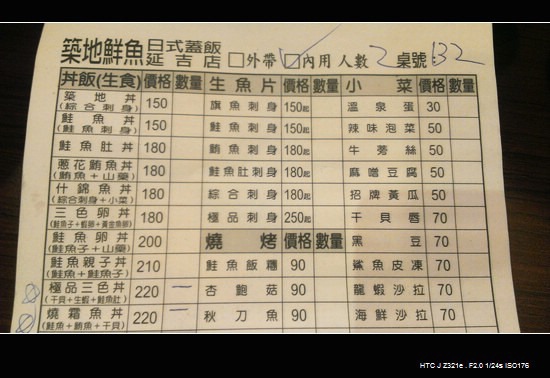 築地鮮魚 日式蓋飯 延吉店 □外帶 ☑內用 人數 2 桌號: B2
丼飯(生食) 價格 數量 生魚片 價格 數量 小菜
築地丼 (綜合刺身) 150 旗魚刺身 150起 溫泉蛋 30
鮭魚丼 (鮭魚刺身) 150 鮭魚刺身 150起 辣味泡菜 50
鮭魚肚丼 180 鮪魚刺身 180起 牛蒡絲 50
蔥花鮪魚丼 (鮪魚+山藥) 180 鮭魚肚刺身 180起 麻噌豆腐 50
什錦魚丼 (綜合刺身+小菜) 180 綜合刺身 180起 招牌黃瓜 50
三色卵丼 (鮭魚子+蝦卵+黃金魚卵) 180 極品刺身 250起 干貝唇 70
鮭魚卵丼 (鮭魚子+山藥) 200 燒烤 價格 數量 黑豆 70
鮭魚親子丼 (鮭魚+鮭魚子) 210 鮭魚飯糰 90 鯊魚皮凍 70
極品三色丼 (干貝+生蝦+鮭魚肚) 220 一 杏鮑菇 90 龍蝦沙拉 70
燒霜魚丼 (鮭魚+鮪魚+干貝) 220 一 秋刀魚 90 海鮮沙拉 70
HTC J Z321e . F2.0 1/24s ISO176